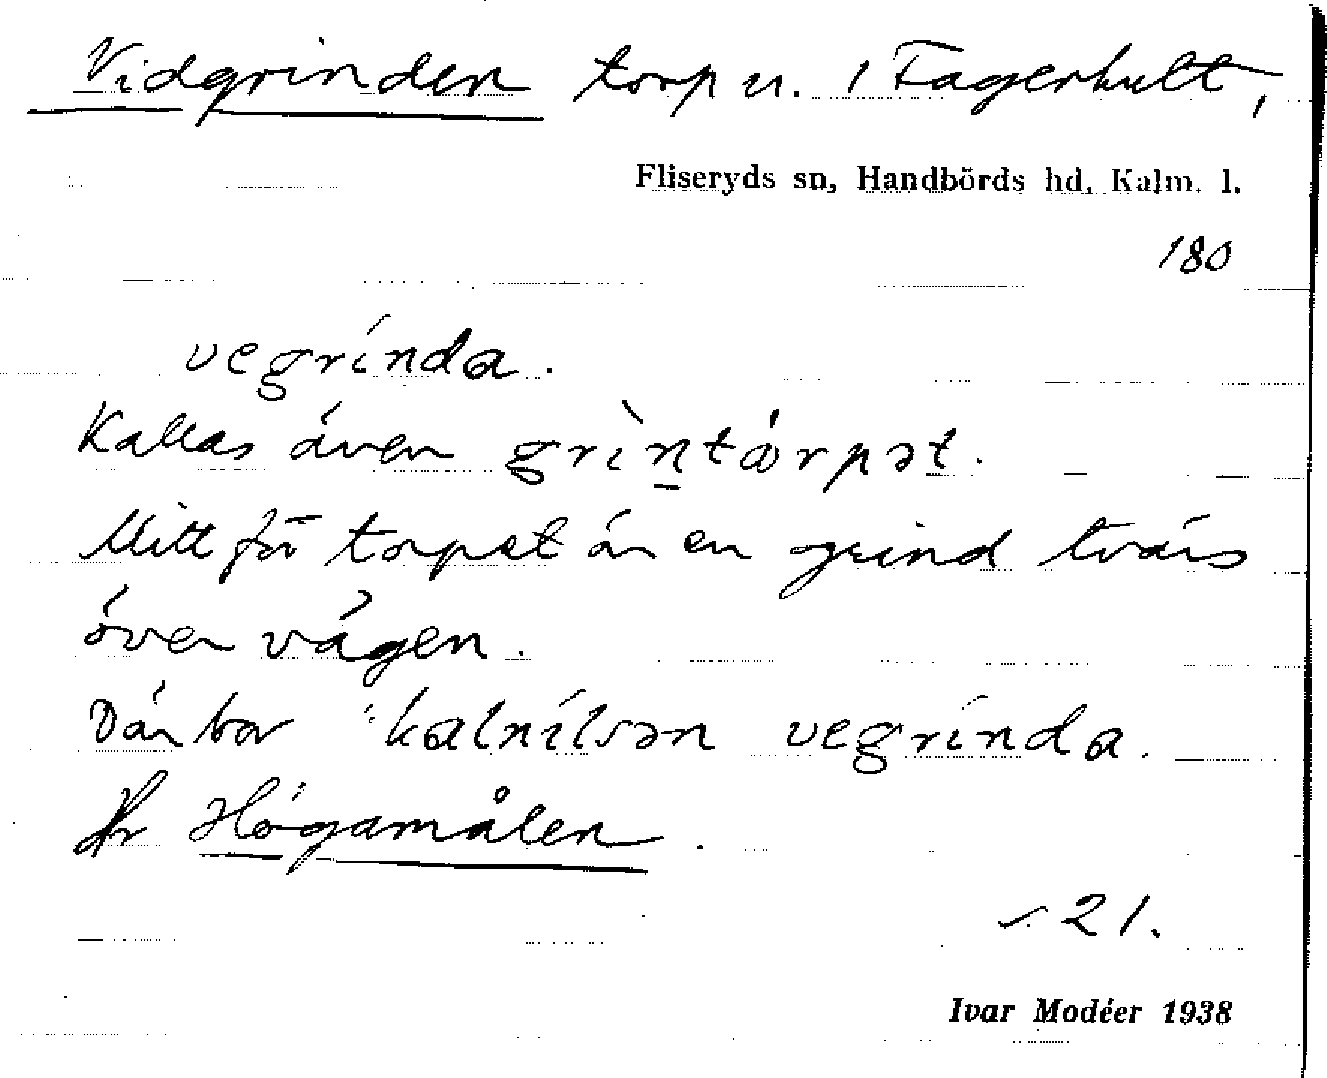 Vidgrinden torp u. 1 Fagerhult,
Fliseryds sn, Handbörds hd, Kalm. l.
180
vegrínda.
Kallas även grìntórpət.
Mitt för torpet är en grind tvärs
över vägen.
Där bor kalnílsən vegrínda.
Jfr Högamålen.
s. 21.
Ivar Modéer 1938